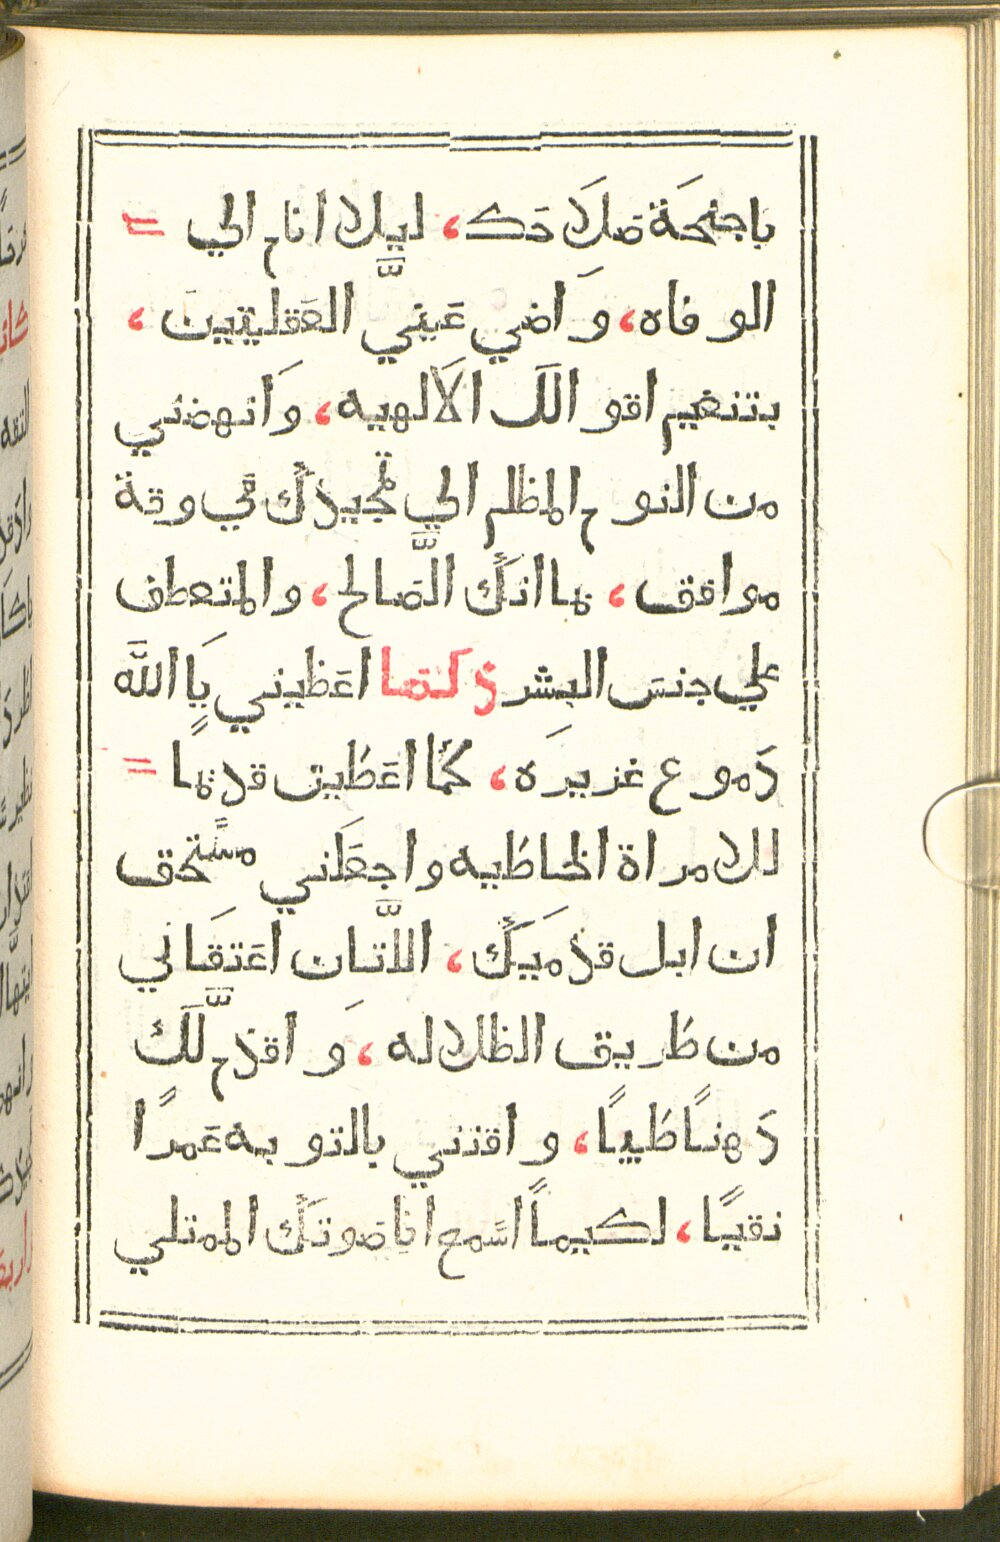 باجنحة صلاحك، ليلا انام الي =
الوفاه، وَاضي عَيني العَقليتين،
بتنغيم اقوالك الاَلهيه، وَانهضني
من النوم المظلم الي تمجيدك في وقة
موافق، بما انك الصَّالح، والمتعطف
علي جنسَ البشر ذكتما اعَطيني يَا اللَّه
دموع غزيرَه، كمَا اعَطيت قديمًا =
للامراة الخاطيه واجعَلني مسَّتحق
ان ابل قدمَيكَ، اللاَّتان اعَتقَاني
من طريق الظلاله، وَاقدم لَّكَ
دهناً طَيباً، واقتني بالتوبه عَمرًا
نقيًا، لكيماً اسَمع انا صَوتكَ الممتلي